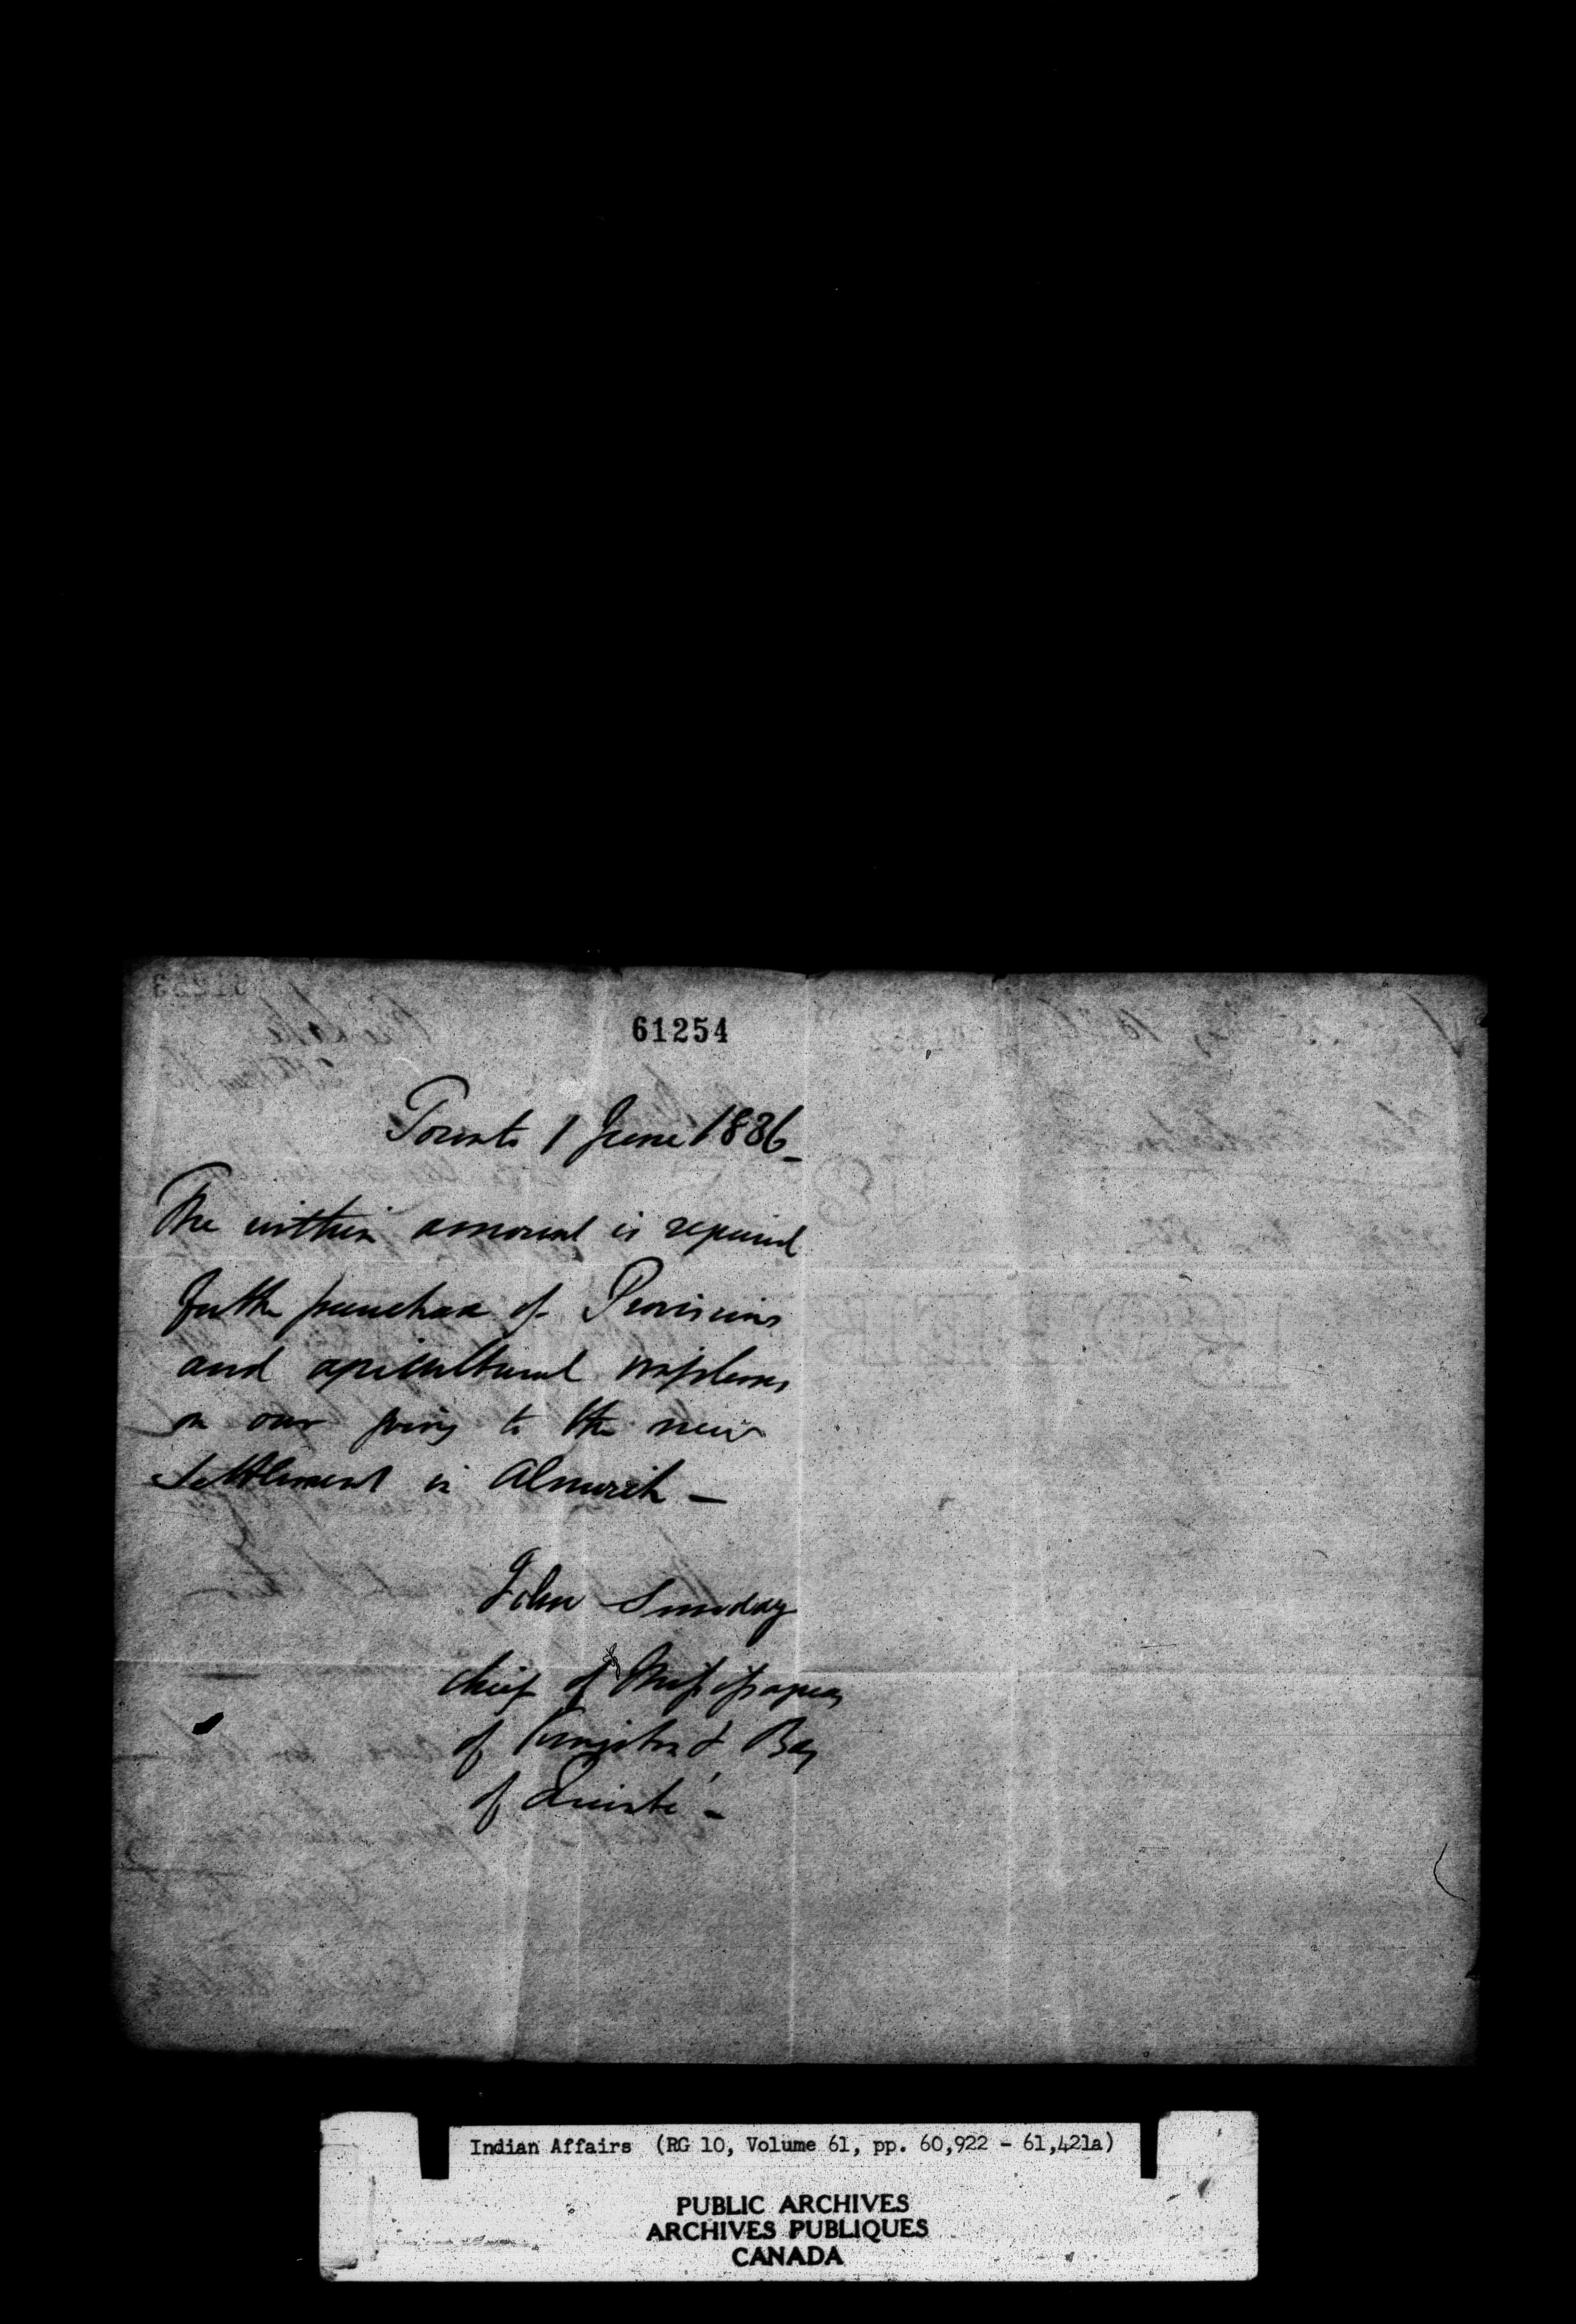 61254
Toronto 1 June 1836_
The within amount is required
for the purchase of Provisions
and agricultural implems
on our going to the new
Settlement in Alnwick —
John Sunday
Chief of Missisagues
of Kingston & Bay
of Quinté —
Indian Affairs (RG 10, Volume 61, pp. 60,922 - 61,421a)
PUBLIC ARCHIVES
ARCHIVES PUBLIQUES
CANADA